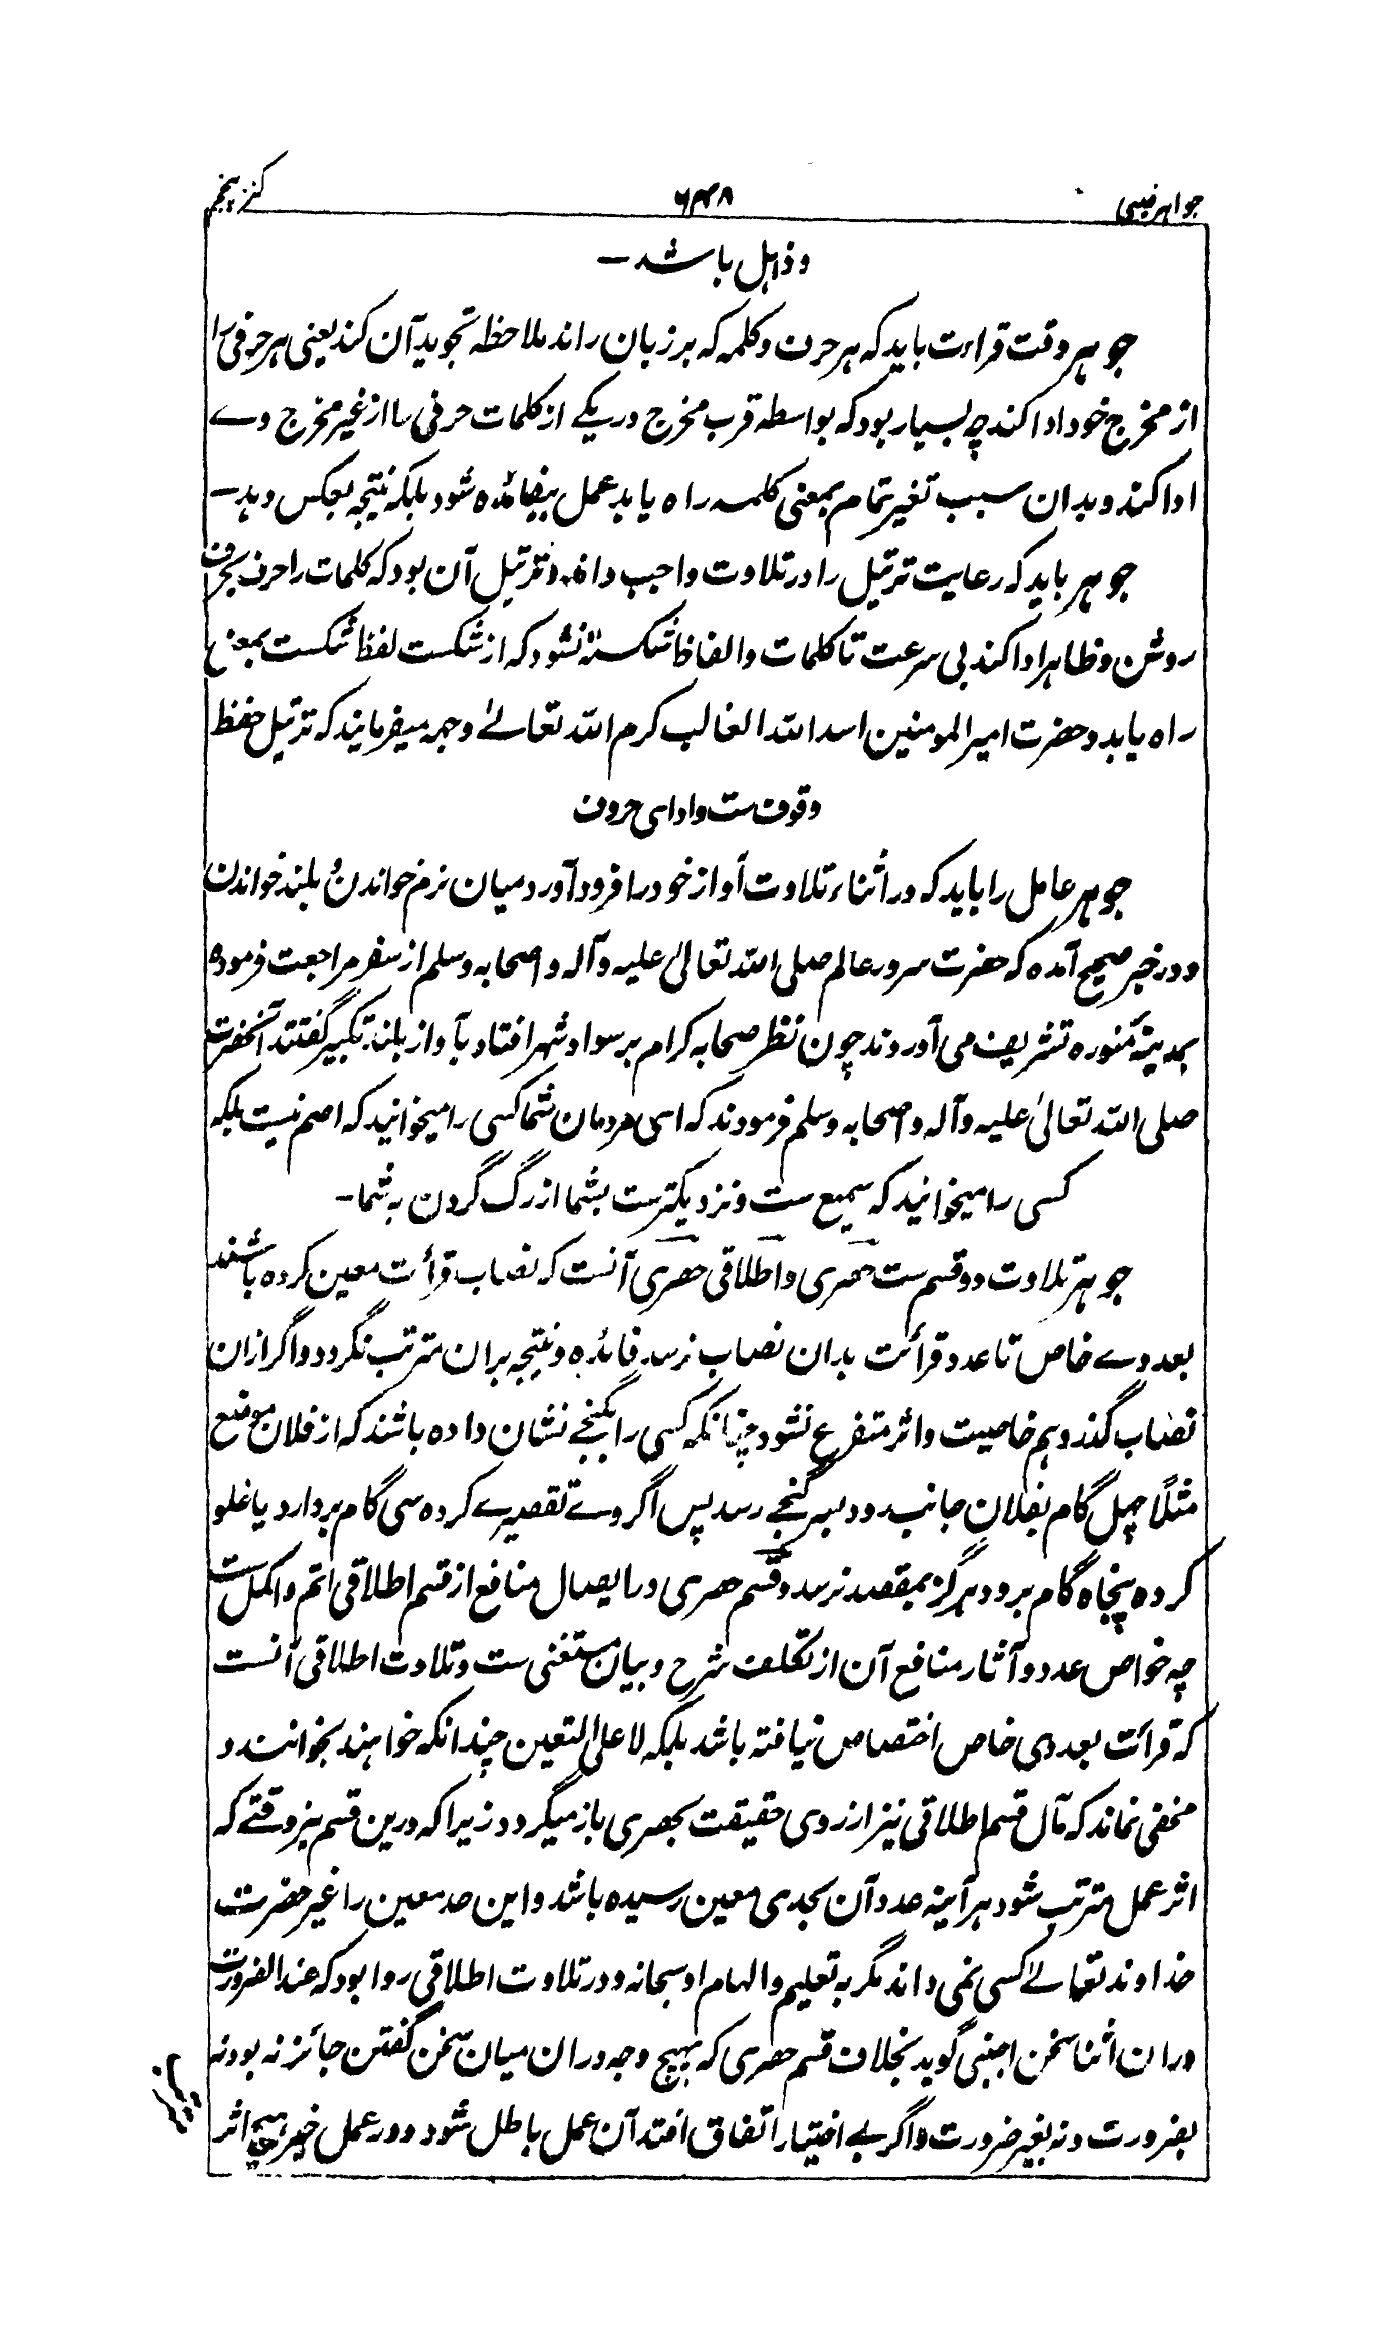 جواہر غیبی ۶۴۸ کنز پنجم
و ذاہل باشد –
جوہر وقت قراءت باید کہ ہر حرف و کلمہ کہ بر زبان راند ملاحظہ تجوید آن کند یعنی ہر حرفی را
از مخرج خود ادا کند چہ بسیار بود کہ بواسطہ قرب مخرج در یکے از کلمات حرفی را از غیر مخرج وے
ادا کند و بدان سبب تغیر تمام بمعنی کلمہ راہ یابد عمل بیفائدہ شود بلکہ نتیجہ بعکس دہد –
جوہر باید کہ رعایت ترتیل را در تلاوت واجب داند و ترتیل آن بود کہ کلمات را حرف بحرف
روشن و ظاہر ادا کند بی سرعت تا کلمات و الفاظ شکستہ نشود کہ از شکست لفظ شکست بمعنی
راہ یابد و حضرت امیر المومنین اسد اللہ الغالب کرم اللہ تعالےٰ وجہہ میفرمایند کہ ترتیل حفظ
وقوف ست و ادای حروف
جوہر عامل را باید کہ در اثناء تلاوت آواز خود را فرود آورد میان نرم خواندن و بلند خواندن
و در خبر صحیح آمدہ کہ حضرت سرور عالم صلی اللہ تعالیٰ علیہ وآلہ واصحابہ وسلم از سفر مراجعت فرمودہ
بمدینۂ منورہ تشریف می آوردند چون نظر صحابہ کرام بر سواد شہر افتاد بآواز بلند تکبیر گفتند آنحضرت
صلی اللہ تعالیٰ علیہ وآلہ واصحابہ وسلم فرمودند کہ ای مردمان شما کسی را میخوانید کہ اصم نیست بلکہ
کسی را میخوانید کہ سمیع ست و نزدیکترست بشما از رگ گردن بہ شما –
جوہر تلاوت دو قسم ست حصری و اطلاقی حصری آنست کہ نصاب قرأت معین کردہ باشند
بعددے خاص تا عدد قرأت بدان نصاب نرسد فائدہ و نتیجہ بران مترتب نگردد و اگر ازان
نصاب گذرد ہم خاصیت و اثر متفرع نشود چنانکہ کسی را بگنجے نشان دادہ باشند کہ از فلان موضع
مثلًا چہل گام بفلان جانب رود بسر گنجے رسد پس اگر وے تقصیرے کردہ سی گام بردارد یا غلو
کردہ پنجاہ گام برود ہرگز بمقصد نرسد و قسم حصری در ایصال منافع از قسم اطلاقی اتم و اکمل ست
چہ خواص عدد و آثار منافع آن از تکلف شرح و بیان مستغنی ست و تلاوت اطلاقی آنست
کہ قرأت بعددی خاص اختصاص نیافتہ باشد بلکہ لا علی التعین چندانکہ خواہند بخوانند و
مخفی نماند کہ مآل قسم اطلاقی نیز از روی حقیقت بحصری باز میگردد زیرا کہ درین قسم نیز وقتے کہ
اثر عمل مترتب شود ہر آینہ عدد آن بحدی معین رسیدہ باشد و این حد معین را غیر حضرت
خداوند تعالےٰ کسی نمی داند مگر بہ تعلیم و الہام او سبحانہ و در تلاوت اطلاقی روا بود کہ عند الضرورت
دران اثنا سخن اجنبی گوید بخلاف قسم حصری کہ بہیچ وجہ دران میان سخن گفتن جائز نہ بود نہ
بضرورت و نہ بغیر ضرورت و اگر بے اختیار اتفاق افتد آن عمل باطل شود و در عمل خیر ہیچ اثر